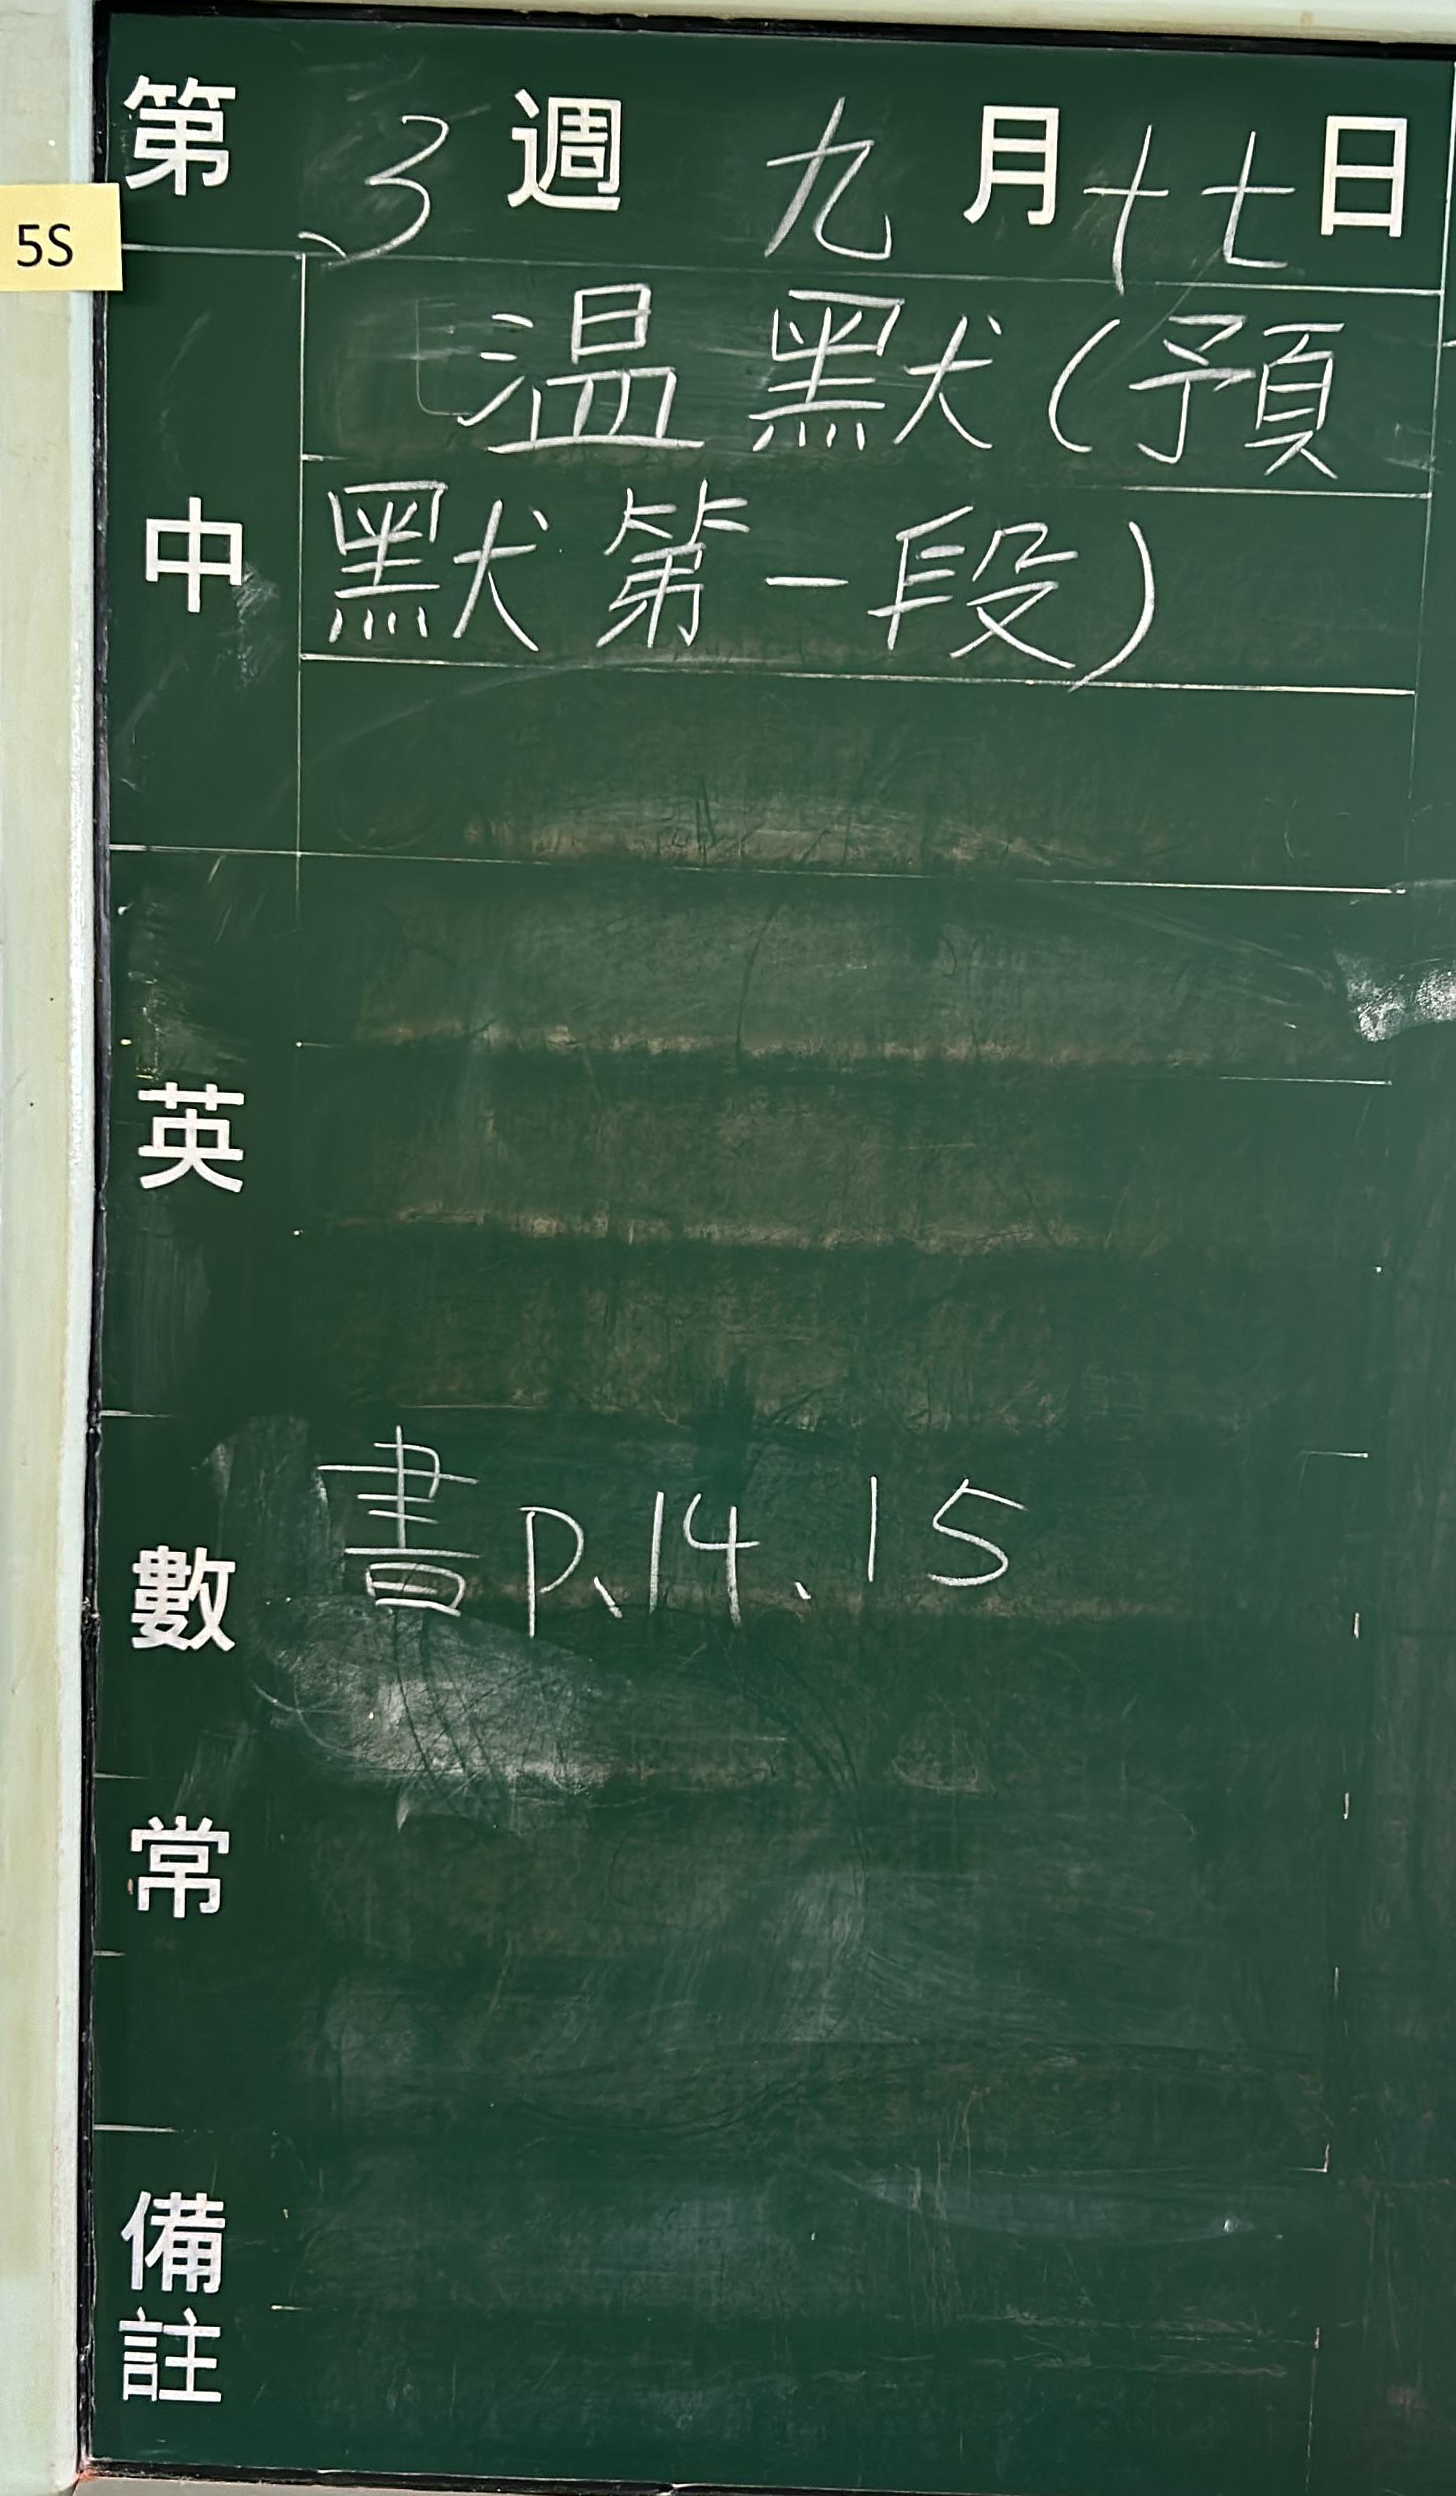 第 3 週 九 月 十七 日
5S
中 温默(預
默第一段)
英
數 書 p.14、15
常
備
註